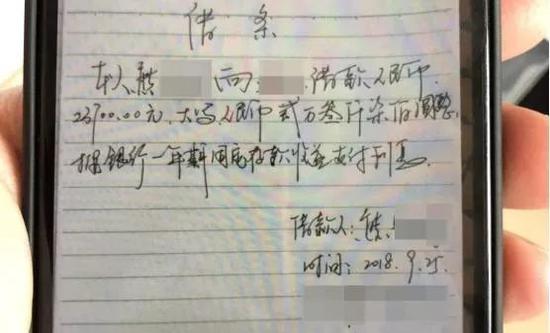 借条
本人熊 向 借款人民币
23700.00元,大写人民币贰万叁仟柒佰圆整,
按银行一年期同底存款收益支付利息
借款人:熊
时间:2018.9.25